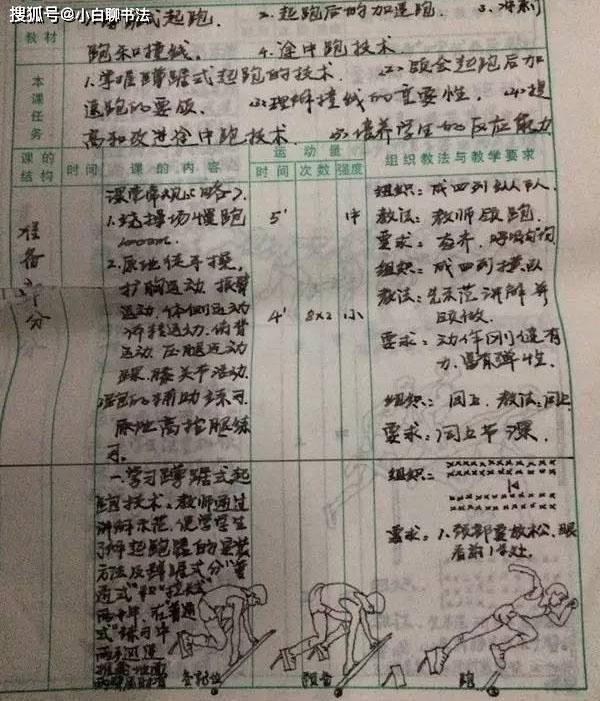 搜狐号@小白聊书法
教材
式起跑. 2.起跑后的加速跑. 3.冲刺
跑和撞线. 4.途中跑技术.
本课任务
1.掌握蹲踞式起跑的技术. (2)领会起跑后加
速跑的要领. (3)理解撞线的重要性. (4)提
高和改进途中跑技术. (5)培养学生的反应能力
课的结构
时间
课的内容
运动量
时间
次数
强度
组织教法与教学要求
准备部分
课堂常规(略).
1.绕操场慢跑
1000m.
5'
中
2.原地徒手操.
扩胸运动 振臂
运动.体侧运动
体转运动.俯背
运动 压腿运动
踝.膝关节活动.
4'
8x2
小
原地高抬腿练
习。
组织:成四列纵队.
教法:教师领跑.
要求:
组织:成四列横队
教法:先示范讲解并
领做.
要求:动作刚健有
力,富有弹性.
组织:同上. 教法:同上
要求:同上节课.
一.学习蹲踞式起
跑技术.教师通过
讲解示范,使学生
了解起跑器的安装
方法及蹲踞式分"普
通式"和"拉长式"
两种.在普通
式"练习中
组织:
要求:1.颈部要放松,眼
看前1米处.
各就位
预备
跑